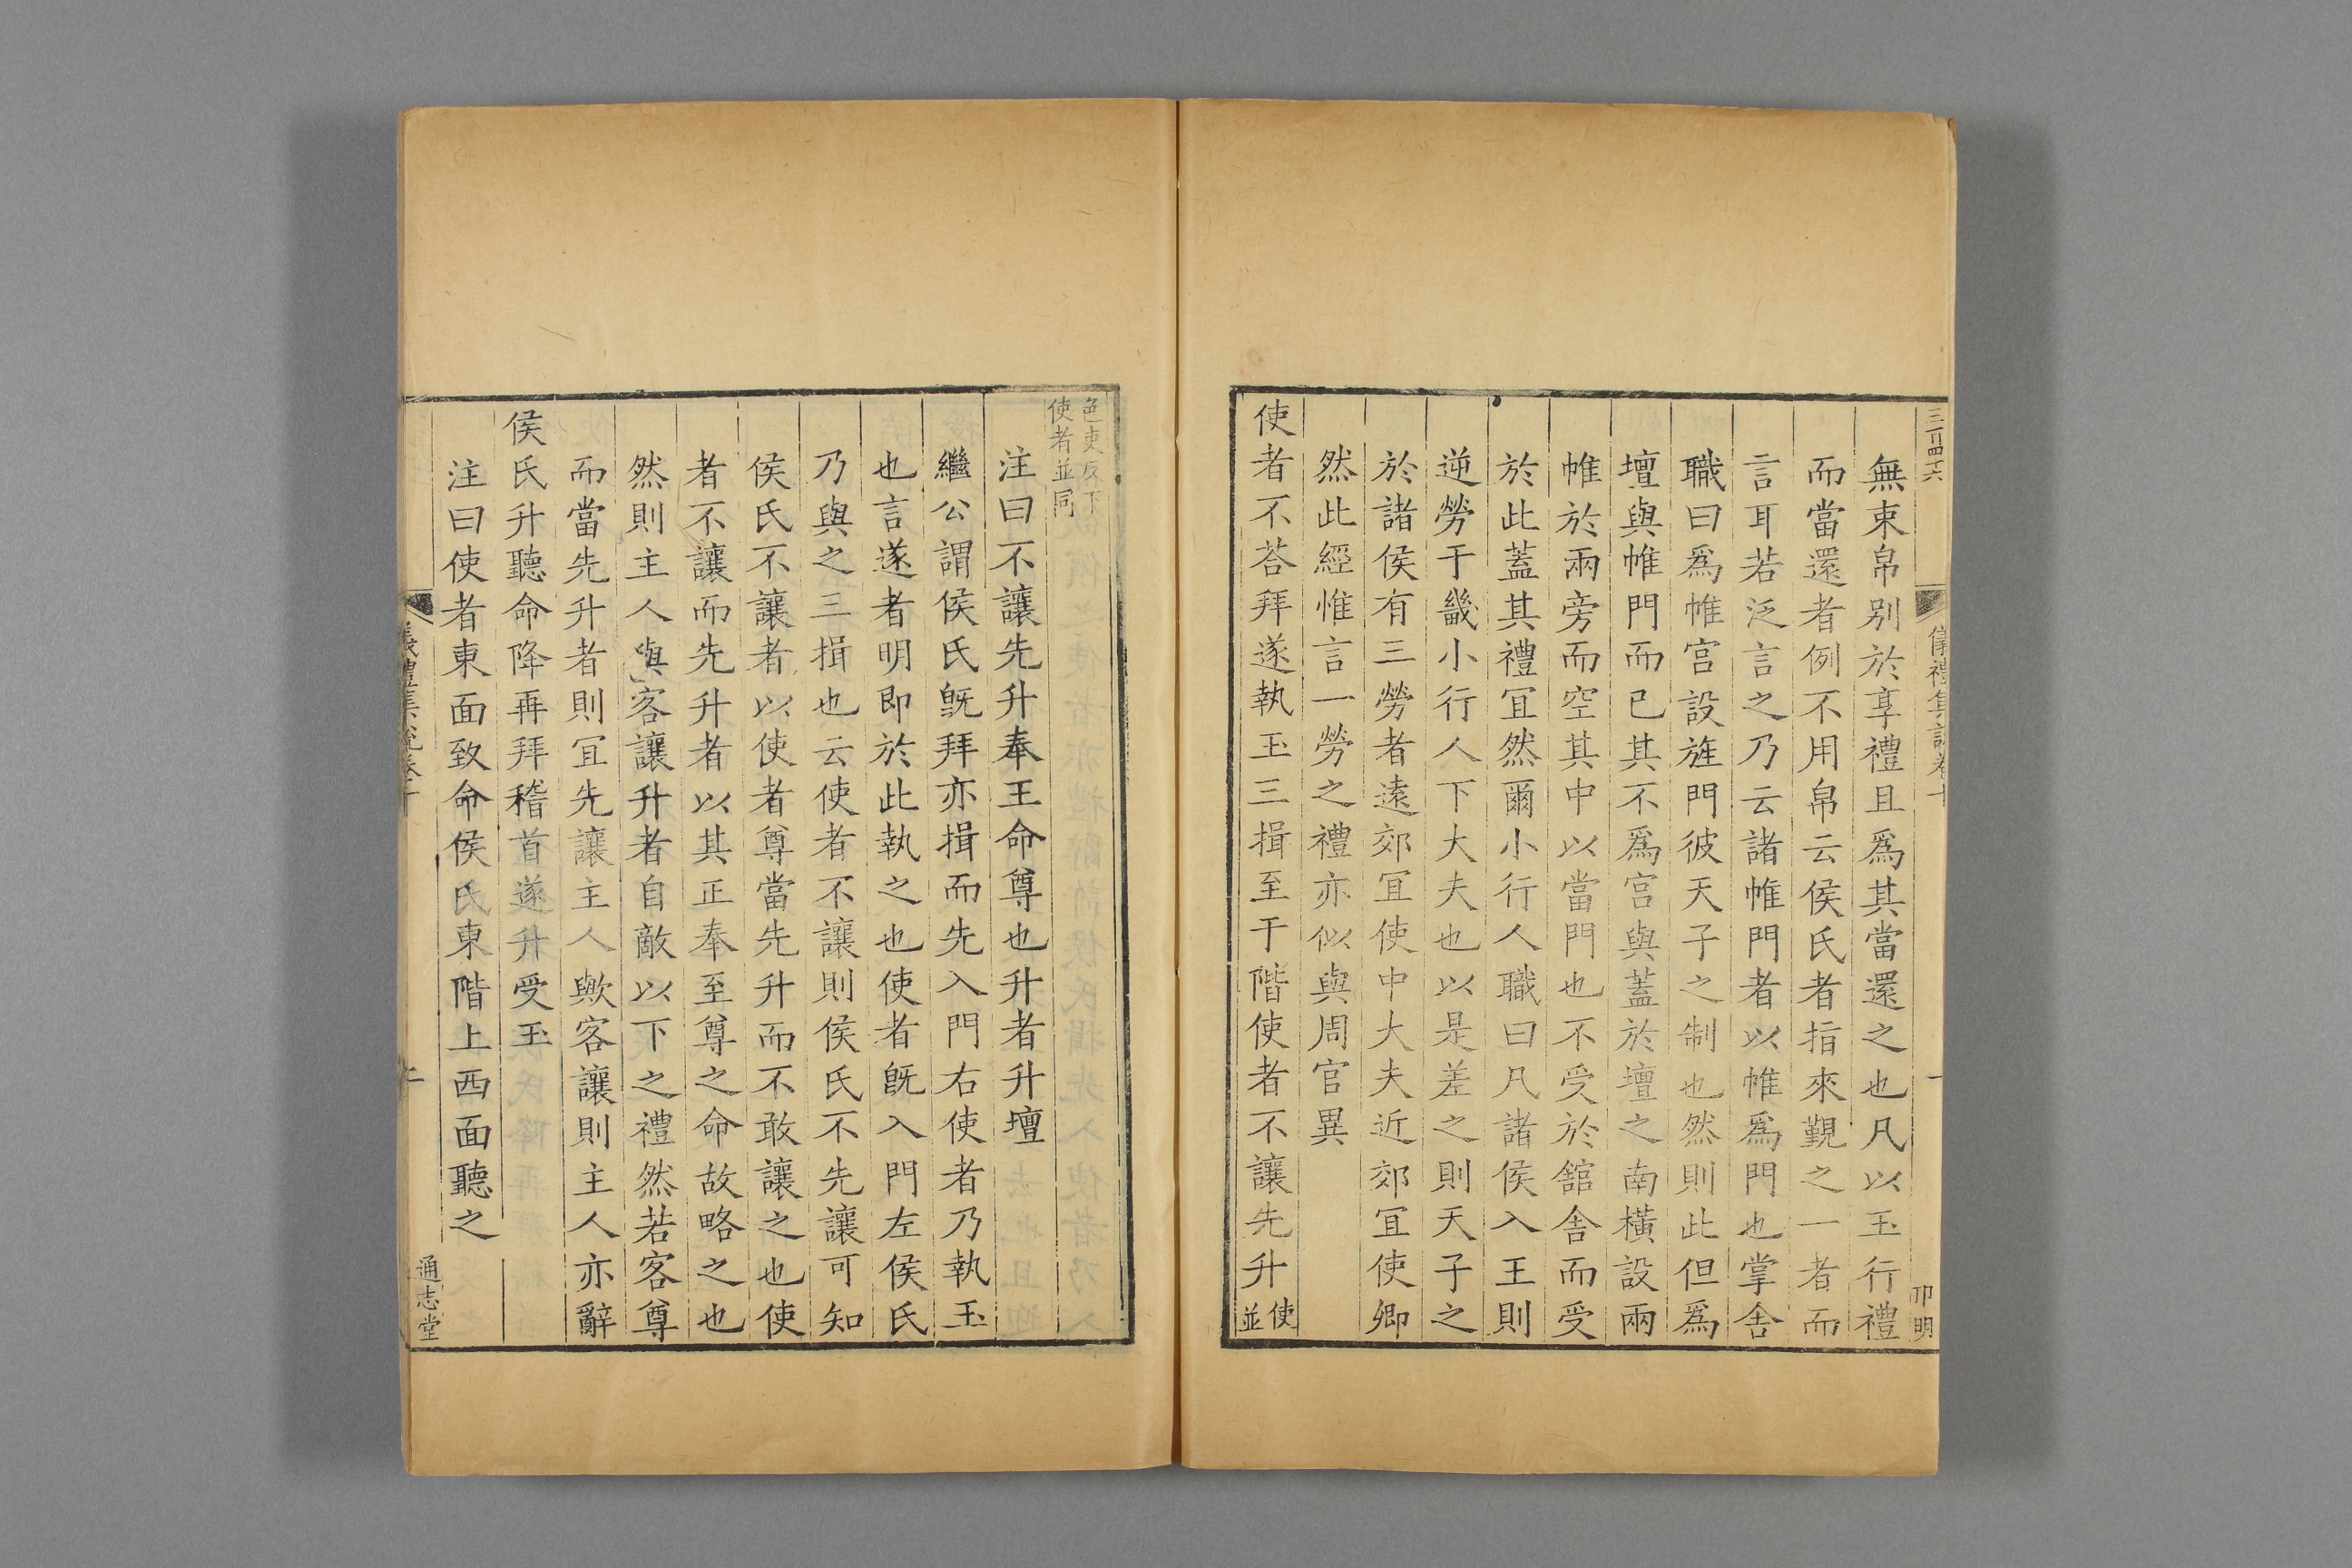 無束帛别於享禮且爲其當還之也凡以玉行禮
而當還者例不用帛云侯氏者指來覲之一者而
言耳若泛言之乃云諸帷門者以帷爲門也掌舍
職曰爲帷宫設旌門彼天子之制也然則此但爲
壇與帷門而已其不爲宫與蓋於壇之南横設兩
帷於兩旁而空其中以當門也不受於舘舍而受
於此蓋其禮冝然爾小行人職曰凡諸侯入王則
逆勞于畿小行人下大夫也以是差之則天子之
於諸侯有三勞者遠郊冝使中大夫近郊冝使卿
然此經惟言一勞之禮亦似與周官異
使者不荅拜遂執玉三揖至于階使者不讓先升使並
色吏反下
使者並同
注曰不讓先升奉王命尊也升者升壇
繼公謂侯氏旣拜亦揖而先入門右使者乃執玉
也言遂者明即於此執之也使者旣入門左侯氏
乃與之三揖也云使者不讓則侯氏不先讓可知
侯氏不讓者以使者尊當先升而不敢讓之也使
者不讓而先升者以其正奉至尊之命故略之也
然則主人與客讓升者自敵以下之禮然若客尊
而當先升者則冝先讓主人歟客讓則主人亦辭
侯氏升聽命降再拜稽首遂升受玉
注曰使者東面致命侯氏東階上西面聽之
儀禮集說卷十
通志堂